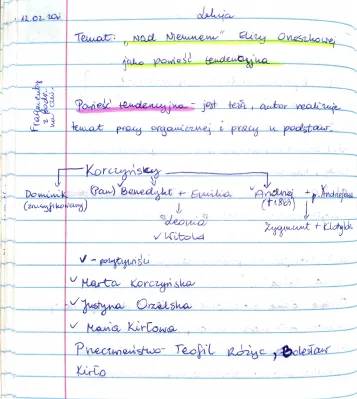 12.02.20
Lekcja
Temat: „Nad Niemnem" Elizy Orzeszkowej
jako powieść tendencyjna
Fragmenty
Powieść tendencyjna - jest teza, autor realizuje
temat pracy organicznej i pracy u podstaw.
Korczyńscy
Dominik (Pan) Benedykt + Emilia Andrzej + p. Andrzejowa
(zrusyfikowany) (†1863)
"Leonia" Zygmunt + Klotylda
✓ Witold
✓ - pozytywiści
✓ Marta Korczyńska
✓ Justyna Orzelska
✓ Maria Kirłowa
Pneciwieństwo- Teofil Różyc, Bolesław
Kirło